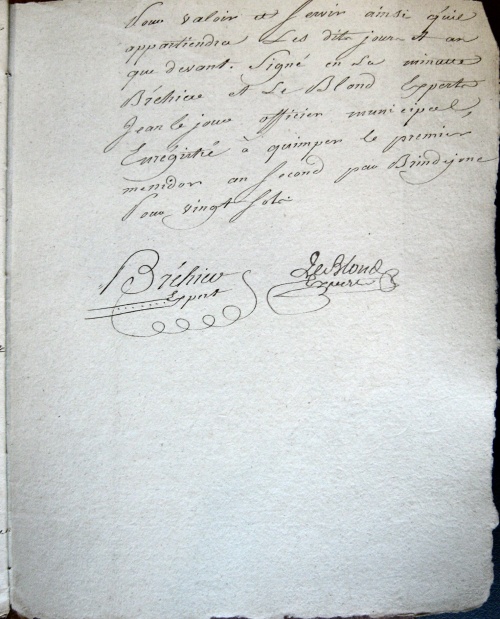 Pour valoir et servir ainsi qu'il
appartiendra Les dits jour et an
que devant. Signé en La minute
Bréhier et Le Blond Experts
Jean le jour officier municipal,
Enrégistré à quimper le premier
mesidor an second par Brindejonc
Pour vingt sols
Bréhier
Expert
Le Blond
Expert